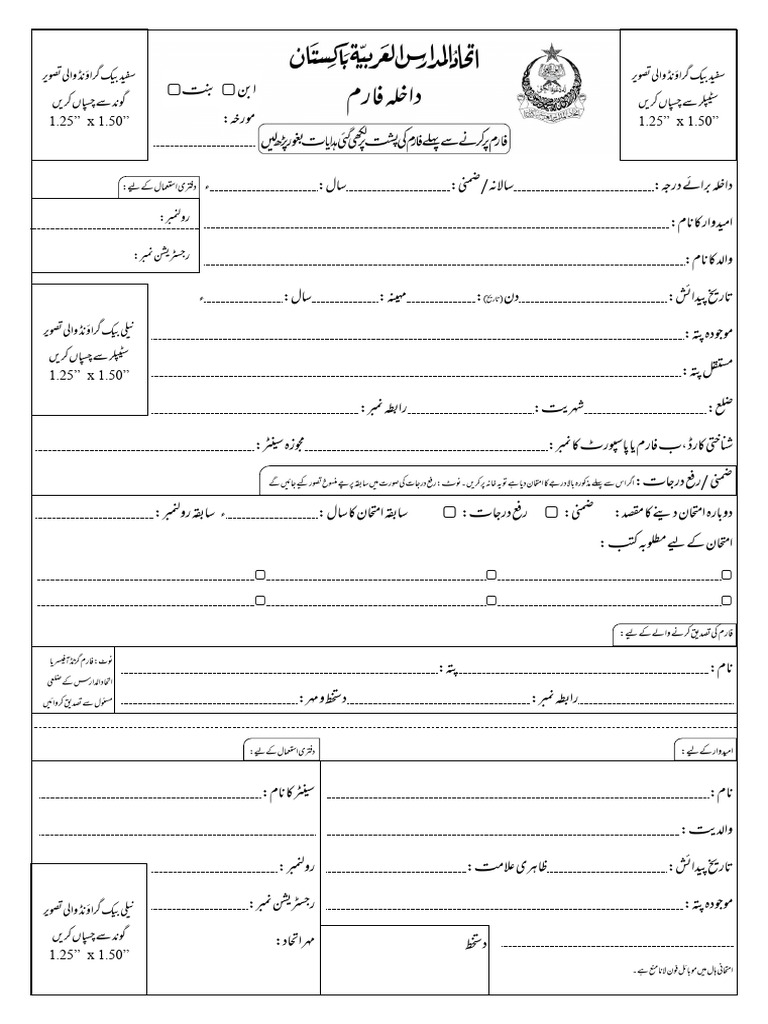 اتحاد المدارس العربیۃ پاکستان
داخلہ فارم
ابن بنت
مورخہ:
فارم پر کرنے سے پہلے فارم کی پشت پر لکھی گئی ہدایات بغور پڑھ لیں
سفید بیک گراؤنڈ والی تصویر
سٹیپلر سے چسپاں کریں
1.25” x 1.50”
سفید بیک گراؤنڈ والی تصویر
گوند سے چسپاں کریں
1.25” x 1.50”
داخلہ برائے درجہ: سالانہ/ضمنی: سال: ء
دفتری استعمال کے لیے:
رولنمبر:
رجسٹریشن نمبر:
امیدوار کا نام:
والد کا نام:
تاریخ پیدائش: دن (تاریخ): مہینہ: سال: ء
موجودہ پتہ:
مستقل پتہ:
نیلی بیک گراؤنڈ والی تصویر
سٹیپلر سے چسپاں کریں
1.25” x 1.50”
ضلع: شہریت: رابطہ نمبر:
شناختی کارڈ، ب فارم یا پاسپورٹ کا نمبر: مجوزہ سینٹر:
ضمنی/رفع درجات: اگر اس سے پہلے مذکورہ بالا درجے کا امتحان دیا ہے تو یہ خانہ پر کریں۔ نوٹ: رفع درجات کی صورت میں سابقہ پرچے منسوخ تصور کیے جائیں گے
دوبارہ امتحان دینے کا مقصد: ضمنی: رفع درجات: سابقہ امتحان کا سال: ء سابقہ رولنمبر:
امتحان کے لیے مطلوبہ کتب:
فارم کی تصدیق کرنے والے کے لیے:
نام: پتہ:
رابطہ نمبر: دستخط و مہر:
نوٹ: فارم گزٹڈ آفیسر یا
اتحاد المدارس کے ضلعی
مسئول سے تصدیق کروائیں
امیدوار کے لیے:
نام:
ولدیت:
تاریخ پیدائش: ظاہری علامت:
موجودہ پتہ:
دستخط
امتحانی ہال میں موبائل فون لانا منع ہے۔
دفتری استعمال کے لیے:
سینٹر کا نام:
رولنمبر:
رجسٹریشن نمبر:
مہر اتحاد:
نیلی بیک گراؤنڈ والی تصویر
گوند سے چسپاں کریں
1.25” x 1.50”